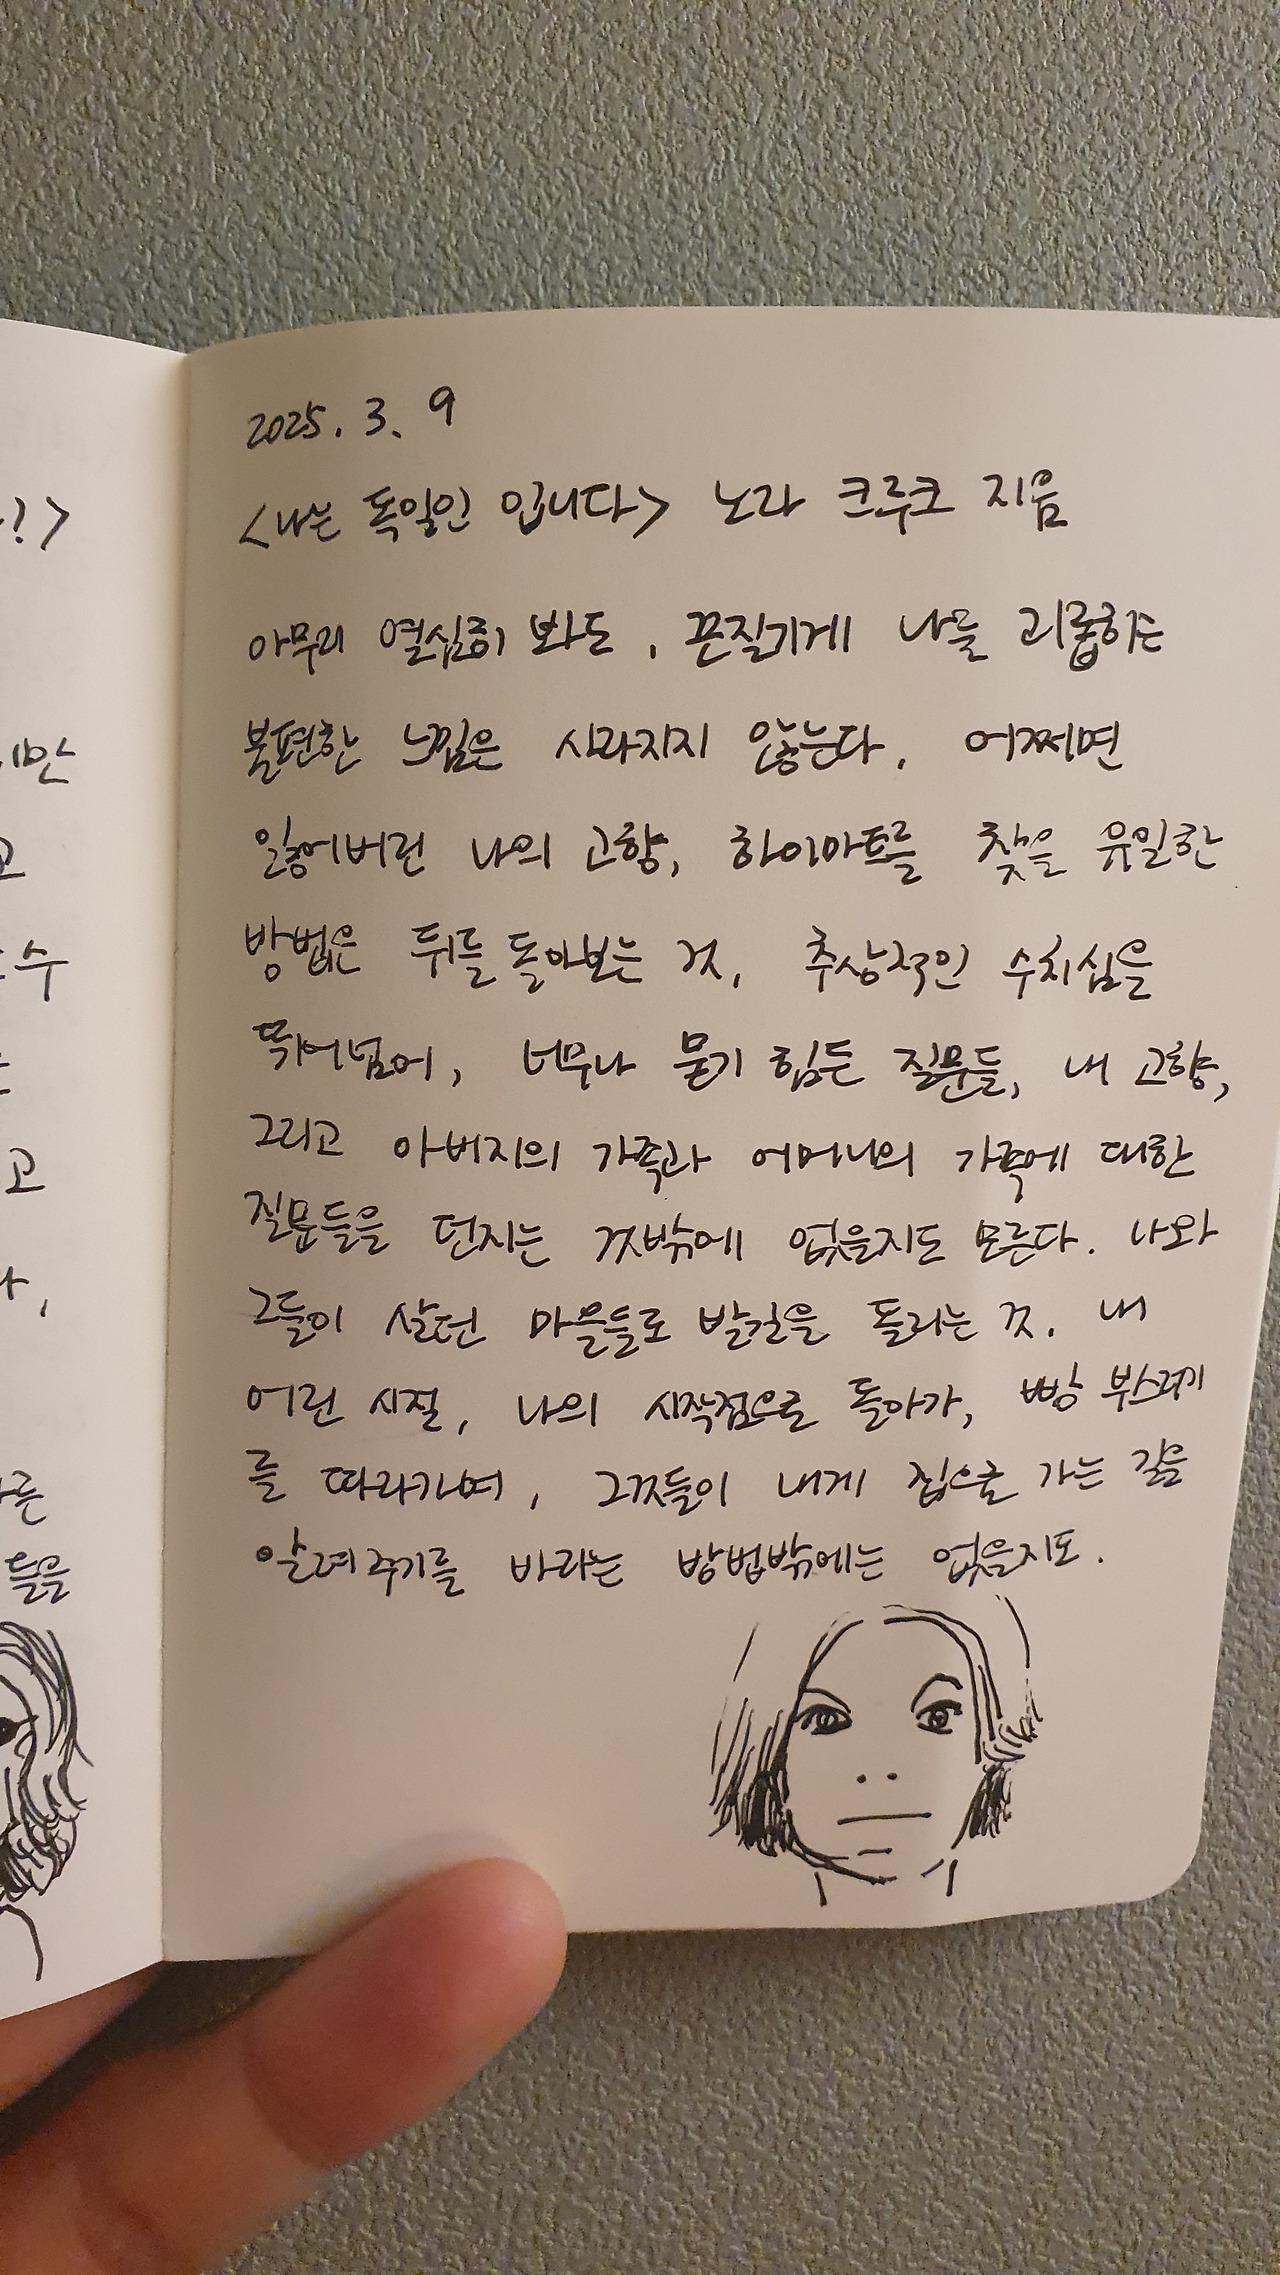 2025. 3. 9
<나는 독일인 입니다> 노라 크루크 지음
아무리 열심히 봐도, 끈질기게 나를 괴롭히는
불편한 느낌은 사라지지 않는다. 어쩌면
잃어버린 나의 고향, 하이마트를 찾을 유일한
방법은 뒤를 돌아보는 것, 추상적인 수치심을
뛰어넘어, 너무나 묻기 힘든 질문들, 내 고향,
그리고 아버지의 가족과 어머니의 가족에 대한
질문들을 던지는 것밖에 없을지도 모른다. 나와
그들이 살던 마을들로 발길을 돌리는 것. 내
어린 시절, 나의 시작점으로 돌아가, 빵 부스러기
를 따라가며, 그것들이 내게 집으로 가는 길을
알려주기를 바라는 방법밖에는 없을지도.